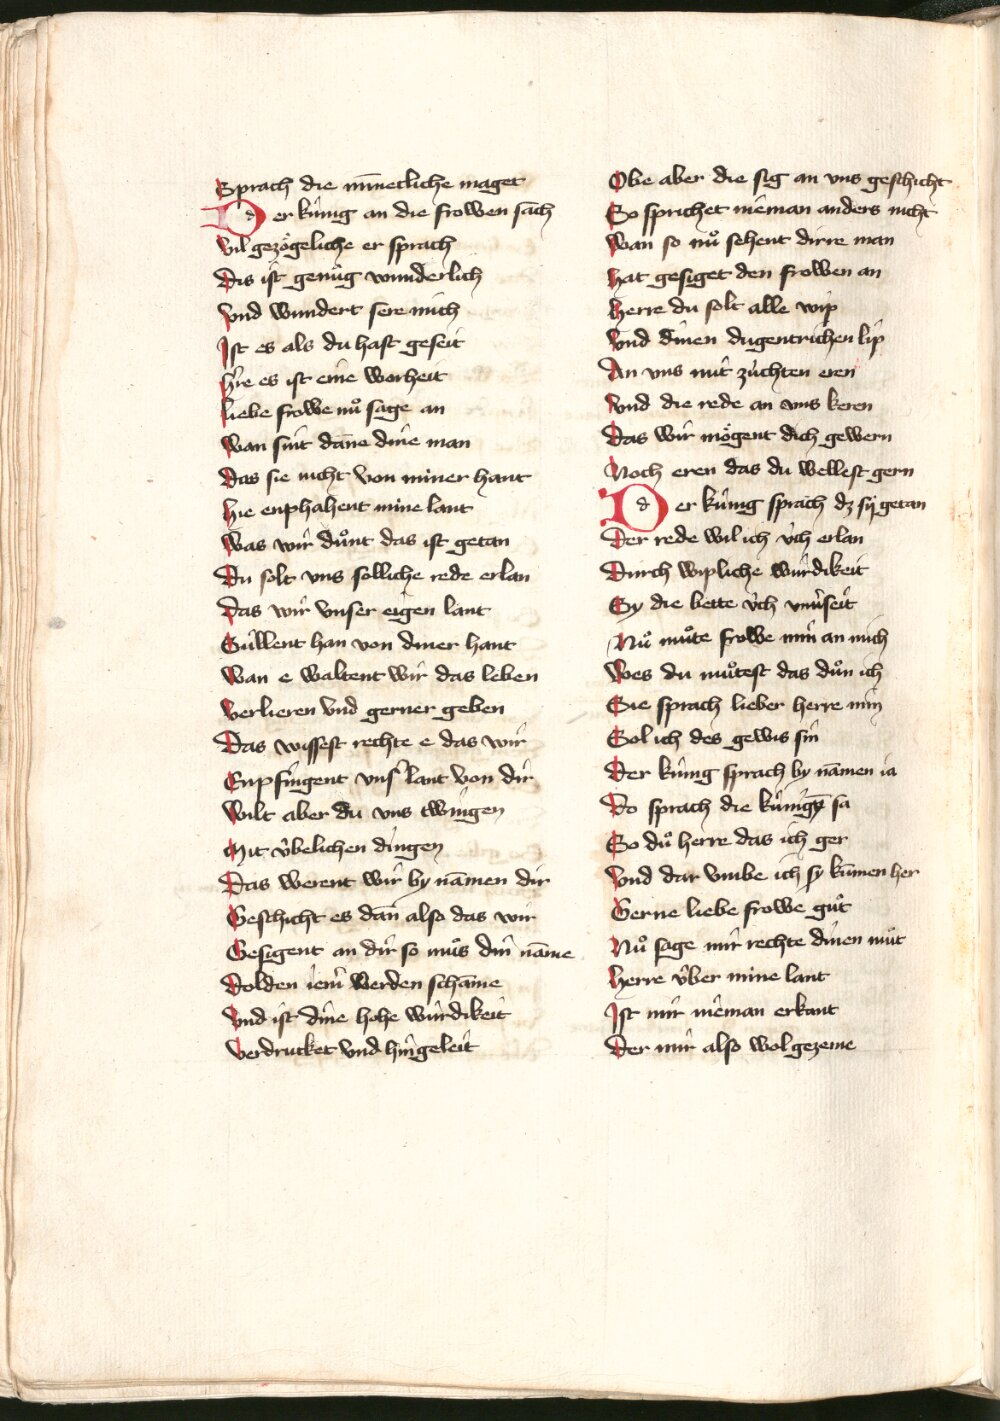 Sprach die mīnecliche maget
Der kúnig an die frowen sach
Vil gezögeliche er sprach
Dis ist genůg wunderlich
Vnd wundert sere mich
Ist es als du hast geseit
h're es ist eine worheit
Liebe frowe nů sage an
Wan sint dāne dine man
Das sie nicht von miner hant
Hie enphahent mine lant
Was wir důnt das ist getan
Du solt vns solliche rede erlan
Das wir vnser eigen lant
Súllent han von diner hant
Wan e waltent wir das leben
Verlieren vnd gerner geben
Das wissest rechte e das wir
Enpfingent vns' lant von dir
Wilt aber du vns twingen
Mit v́belichen dingen
Das werent wir by nāmen dir
Geschicht es dān also das wir
Gesigent an dir so můs din nāme
Dolden iem' werden schāme
Vnd ist dine hohe wúrdikeit
Verdrucket vnd hingeleit
Obe aber die sig an vns geschicht
So sprichet nieman anders nicht
Wan so nů sehent dirre man
Hat gesiget den frowen an
Herre du solt alle wip
Vnd dinen dugentrichen lip
An vns mit zúchten eren
Vnd die rede an vns keren
Das wir mögent dich gewern
Noch eren das du wellest gern
Der kúnig sprach dz sy getan
Der rede wil ich v́ch erlan
Durch wipliche wúrdikeit
Sy die bette v́ch vnúseit
Nů můte frowe min an mich
Wes du můtest das důn ich
Sie sprach lieber herre min
Sol ich des gewis sin
Der kúnig sprach by nāmen ia
Do sprach die kúnigȳ sa
So důͦ herre das ich ger
Vnd dar vmbe ich sy kūmen her
Gerne liebe frowe gůt
Nů sage mir rechte dinen můt
Herre v́ber mine lant
Ist mir nieman erkant
Der mir also wol gezeme